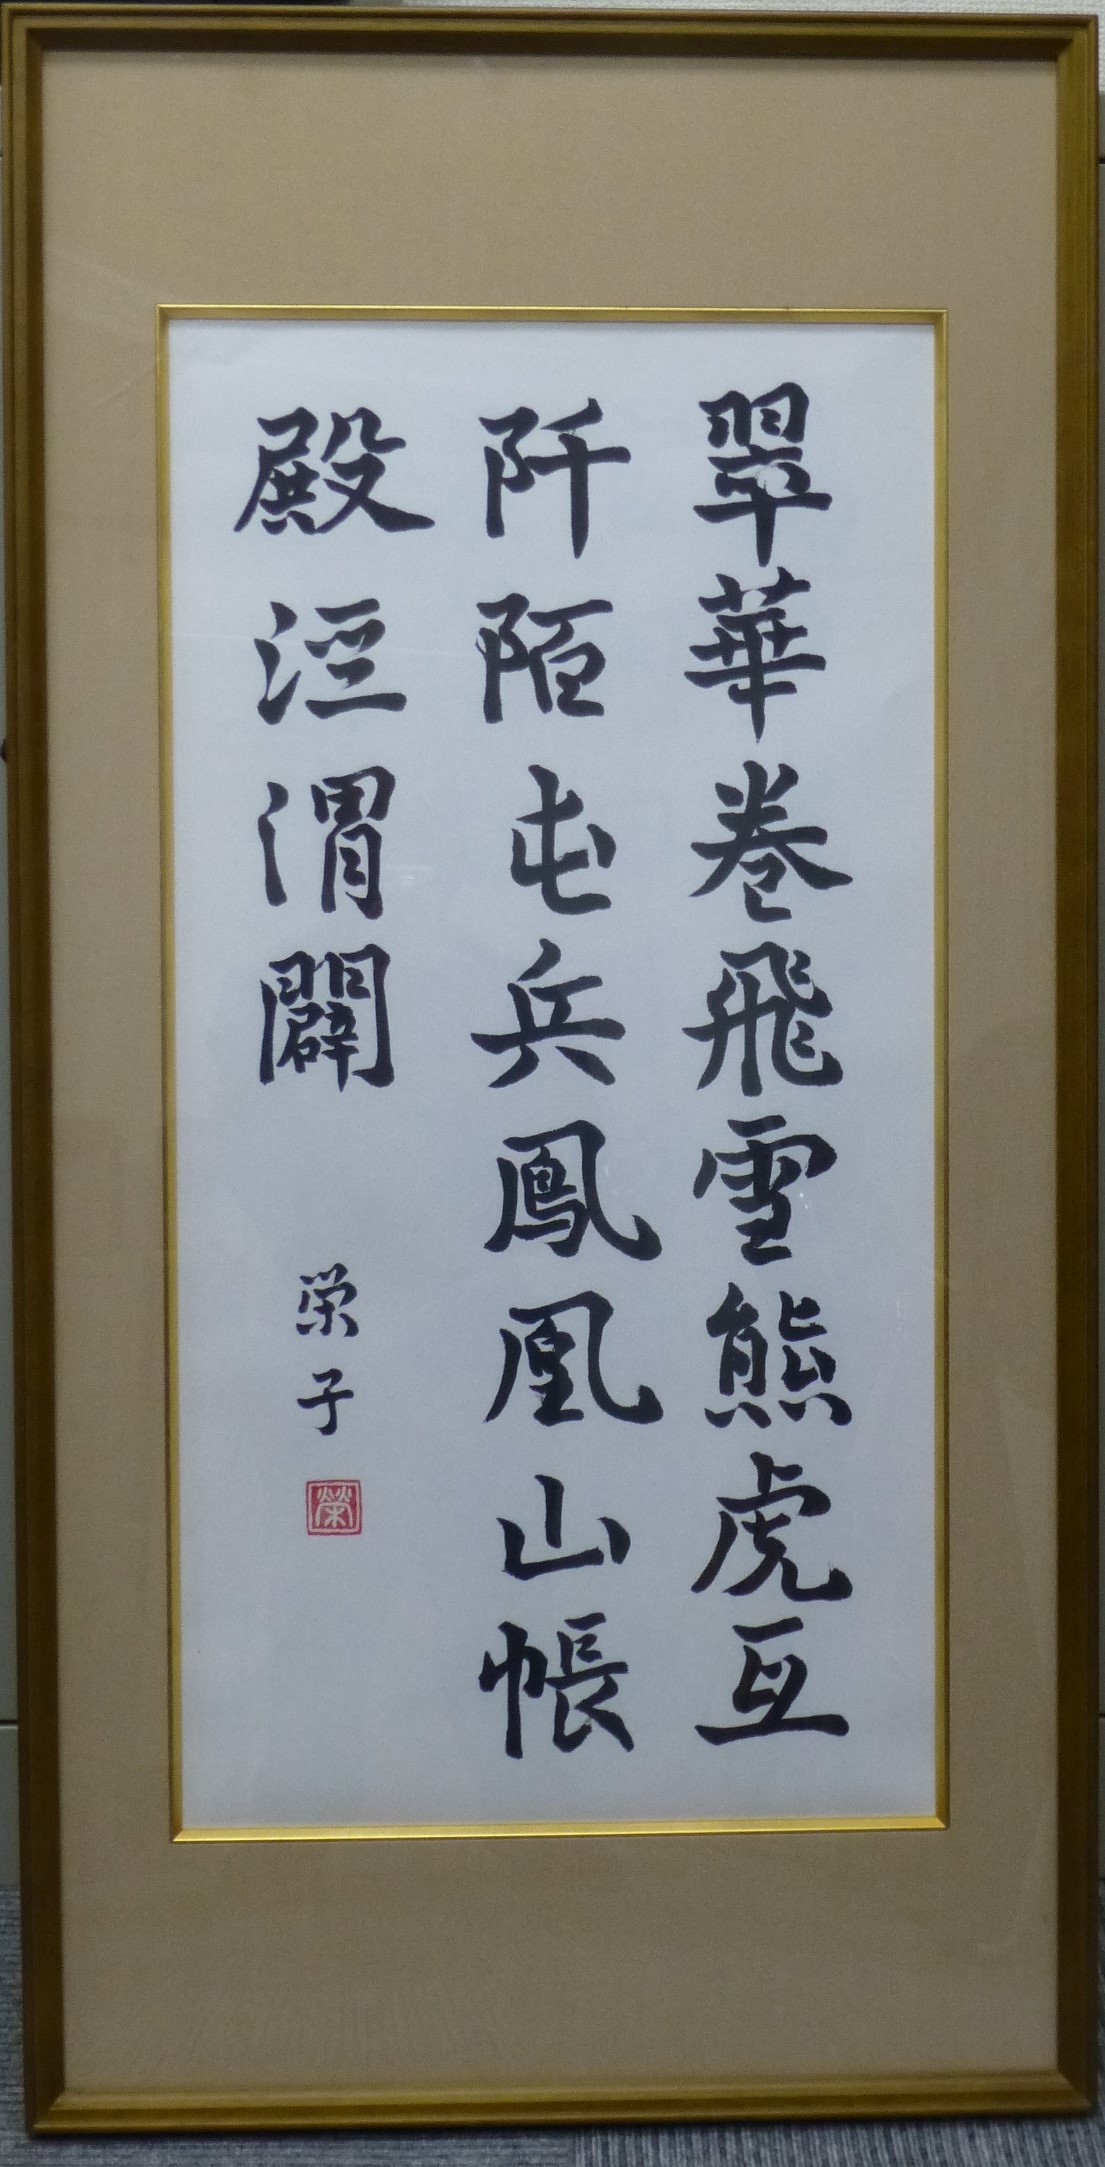 翠華卷飛雪熊虎亙
阡陌屯兵鳳凰山帳
殿涇渭闢
栄子
榮